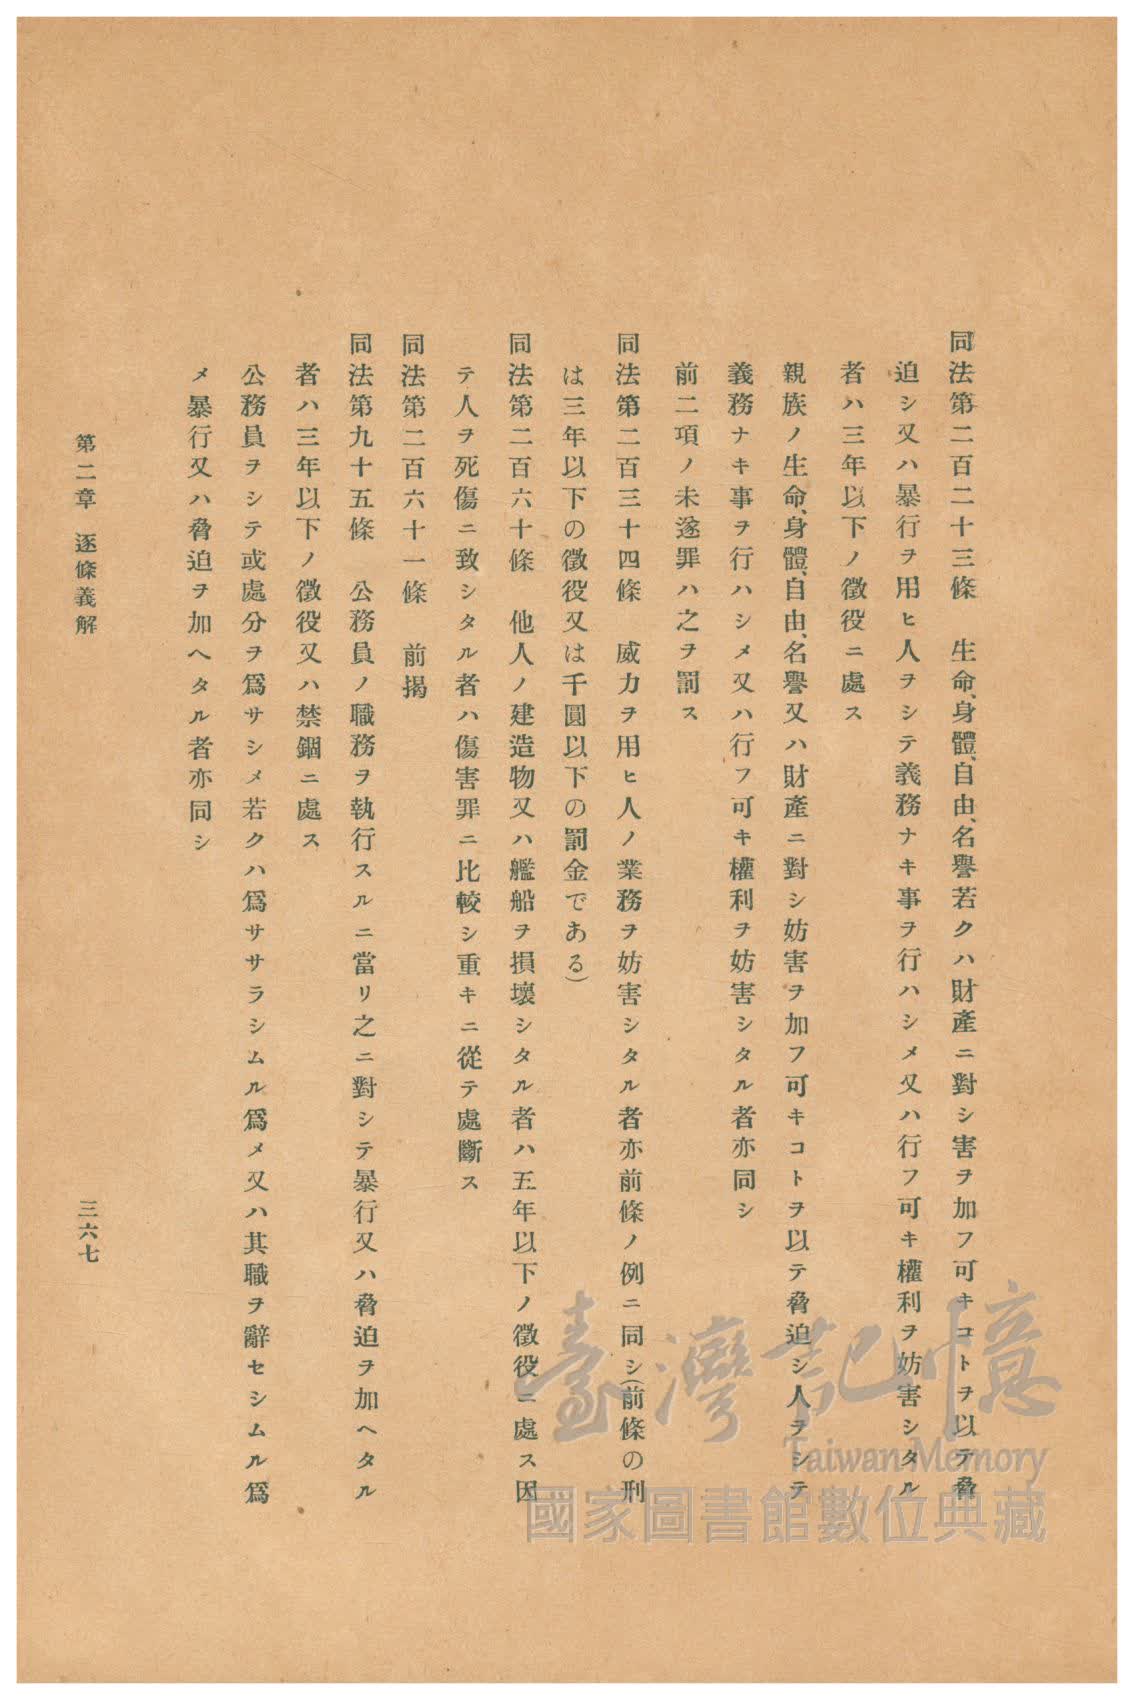 同法第二百二十三條　生命、身體、自由、名譽若クハ財產ニ對シ害ヲ加フ可キコトヲ以テ脅
迫シ又ハ暴行ヲ用ヒ人ヲシテ義務ナキ事ヲ行ハシメ又ハ行フ可キ權利ヲ妨害シタル
者ハ三年以下ノ徵役ニ處ス
親族ノ生命、身體、自由、名譽又ハ財產ニ對シ妨害ヲ加フ可キコトヲ以テ脅迫シ人ヲシテ
義務ナキ事ヲ行ハシメ又ハ行フ可キ權利ヲ妨害シタル者亦同シ
前二項ノ未遂罪ハ之ヲ罰ス
同法第二百三十四條　威力ヲ用ヒ人ノ業務ヲ妨害シタル者亦前條ノ例ニ同シ(前條の刑
は三年以下の徵役又は千圓以下の罰金である)
同法第二百六十條　他人ノ建造物又ハ艦船ヲ損壞シタル者ハ五年以下ノ徵役ニ處ス因
テ人ヲ死傷ニ致シタル者ハ傷害罪ニ比較シ重キニ從テ處斷ス
同法第二百六十一條　前揭
同法第九十五條　公務員ノ職務ヲ執行スルニ當リ之ニ對シテ暴行又ハ脅迫ヲ加ヘタル
者ハ三年以下ノ徵役又ハ禁錮ニ處ス
公務員ヲシテ或處分ヲ爲サシメ若クハ爲ササラシムル爲メ又ハ其職ヲ辭セシムル爲
メ暴行又ハ脅迫ヲ加ヘタル者亦同シ
第二章　逐條義解
三六七
臺灣記憶
Taiwan Memory
國家圖書館數位典藏